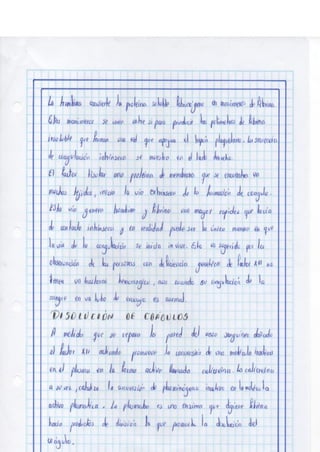 La trombina convierte la proteína soluble fibrinógeno en monómeros de fibrina.
Estos monómeros se unen entre si para producir los polímeros de fibrina
insoluble que forman una red que apoya el tapón plaquetario. La secuencia
de coagulación intrínseca se muestra en el lado derecho.
El factor tisular una proteína de membrana que se encuentra en
muchos tejidos, inicia la vía extrínseca de la formación de coagulo.
Esta vía genera trombina y fibrina con mayor rapidez que hacia
de contacto intrínseca y en realidad puede ser la única manera en que
la vía de la coagulación se inicia in vivo. Esto es sugerido por la
observación de las personas con deficiencia genética de factor XII no
tienen un trastorno hemorrágico, aun cuando su coagulación de la
sangre en un tubo de ensayo es anormal.
DISOLUCIÓN DE COAGULOS
A medida que se repara la pared del vaso sanguíneo dañado
el factor XII activado promueve la conversión de una molécula inactiva
en el plasma en la forma activa llamada calicreína. La calicreína
a su vez, cataliza la conversión de plasminógeno inactivo en la molécula
activa plasmina. La plasmina es una enzima que digiere fibrina
hacia productos de división lo que promueve la disolución del
coágulo.